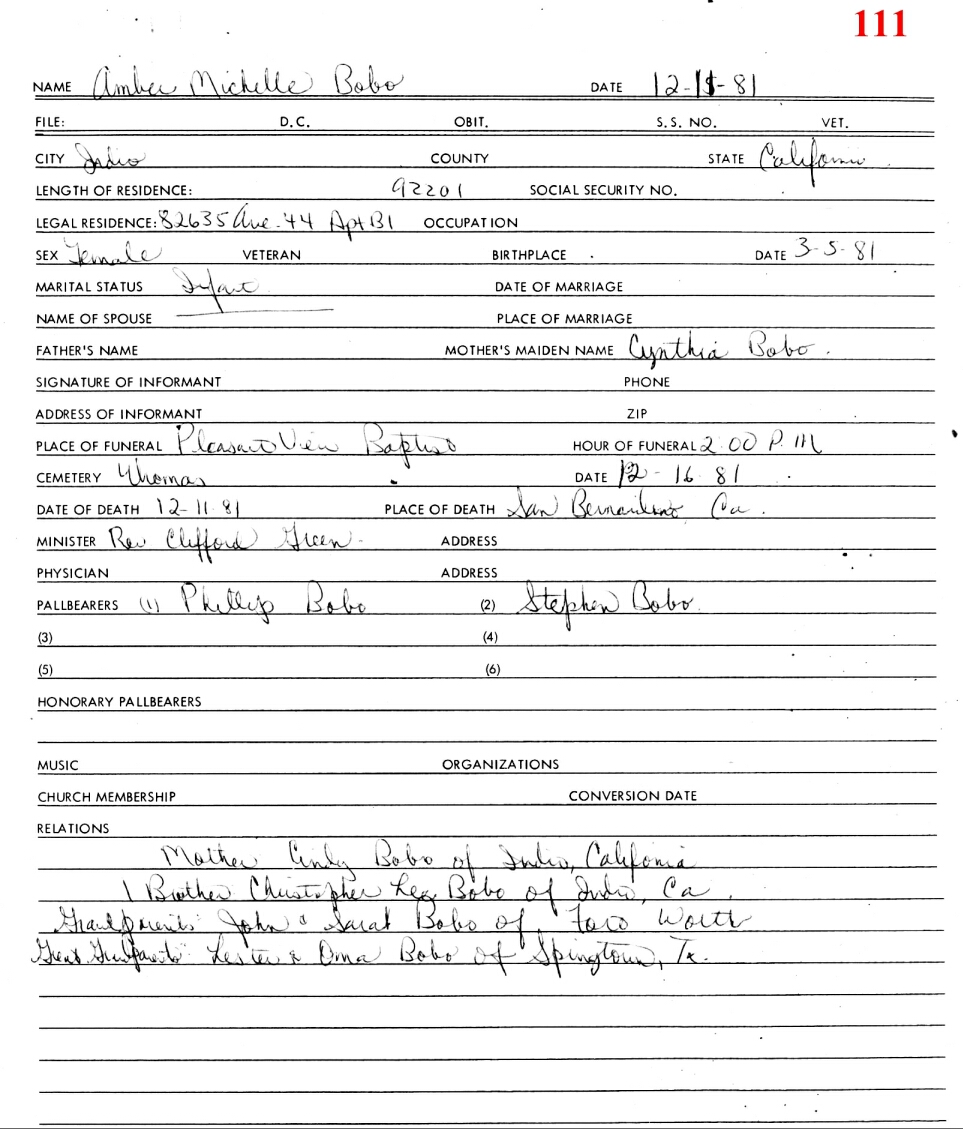 111
NAME Amber Michelle Bobo DATE 12-15-81
FILE: D.C. OBIT. S.S. NO. VET.
CITY Indio COUNTY STATE California
LENGTH OF RESIDENCE: 92201 SOCIAL SECURITY NO.
LEGAL RESIDENCE: 82635 Ave. 44 Apt B1 OCCUPATION
SEX Female VETERAN BIRTHPLACE DATE 3-5-81
MARITAL STATUS Infant DATE OF MARRIAGE
NAME OF SPOUSE PLACE OF MARRIAGE
FATHER'S NAME MOTHER'S MAIDEN NAME Cynthia Bobo.
SIGNATURE OF INFORMANT PHONE
ADDRESS OF INFORMANT ZIP
PLACE OF FUNERAL Pleasant View Baptist HOUR OF FUNERAL 2:00 P.M
CEMETERY Thomas DATE 12-16-81
DATE OF DEATH 12-11-81 PLACE OF DEATH San Bernardino Ca.
MINISTER Rev Clifford Green ADDRESS
PHYSICIAN ADDRESS
PALLBEARERS (1) Phillip Bobo (2) Stephen Bobo.
(3) (4)
(5) (6)
HONORARY PALLBEARERS
MUSIC ORGANIZATIONS
CHURCH MEMBERSHIP CONVERSION DATE
RELATIONS
Mother Cindy Bobo of Indio, California
1 Brother Christopher Lee Bobo of Indio, Ca.
Grandparents: John & Sarah Bobo of Fort Worth
Great Grandparents: Lester & Oma Bobo of Springtown, Tx.